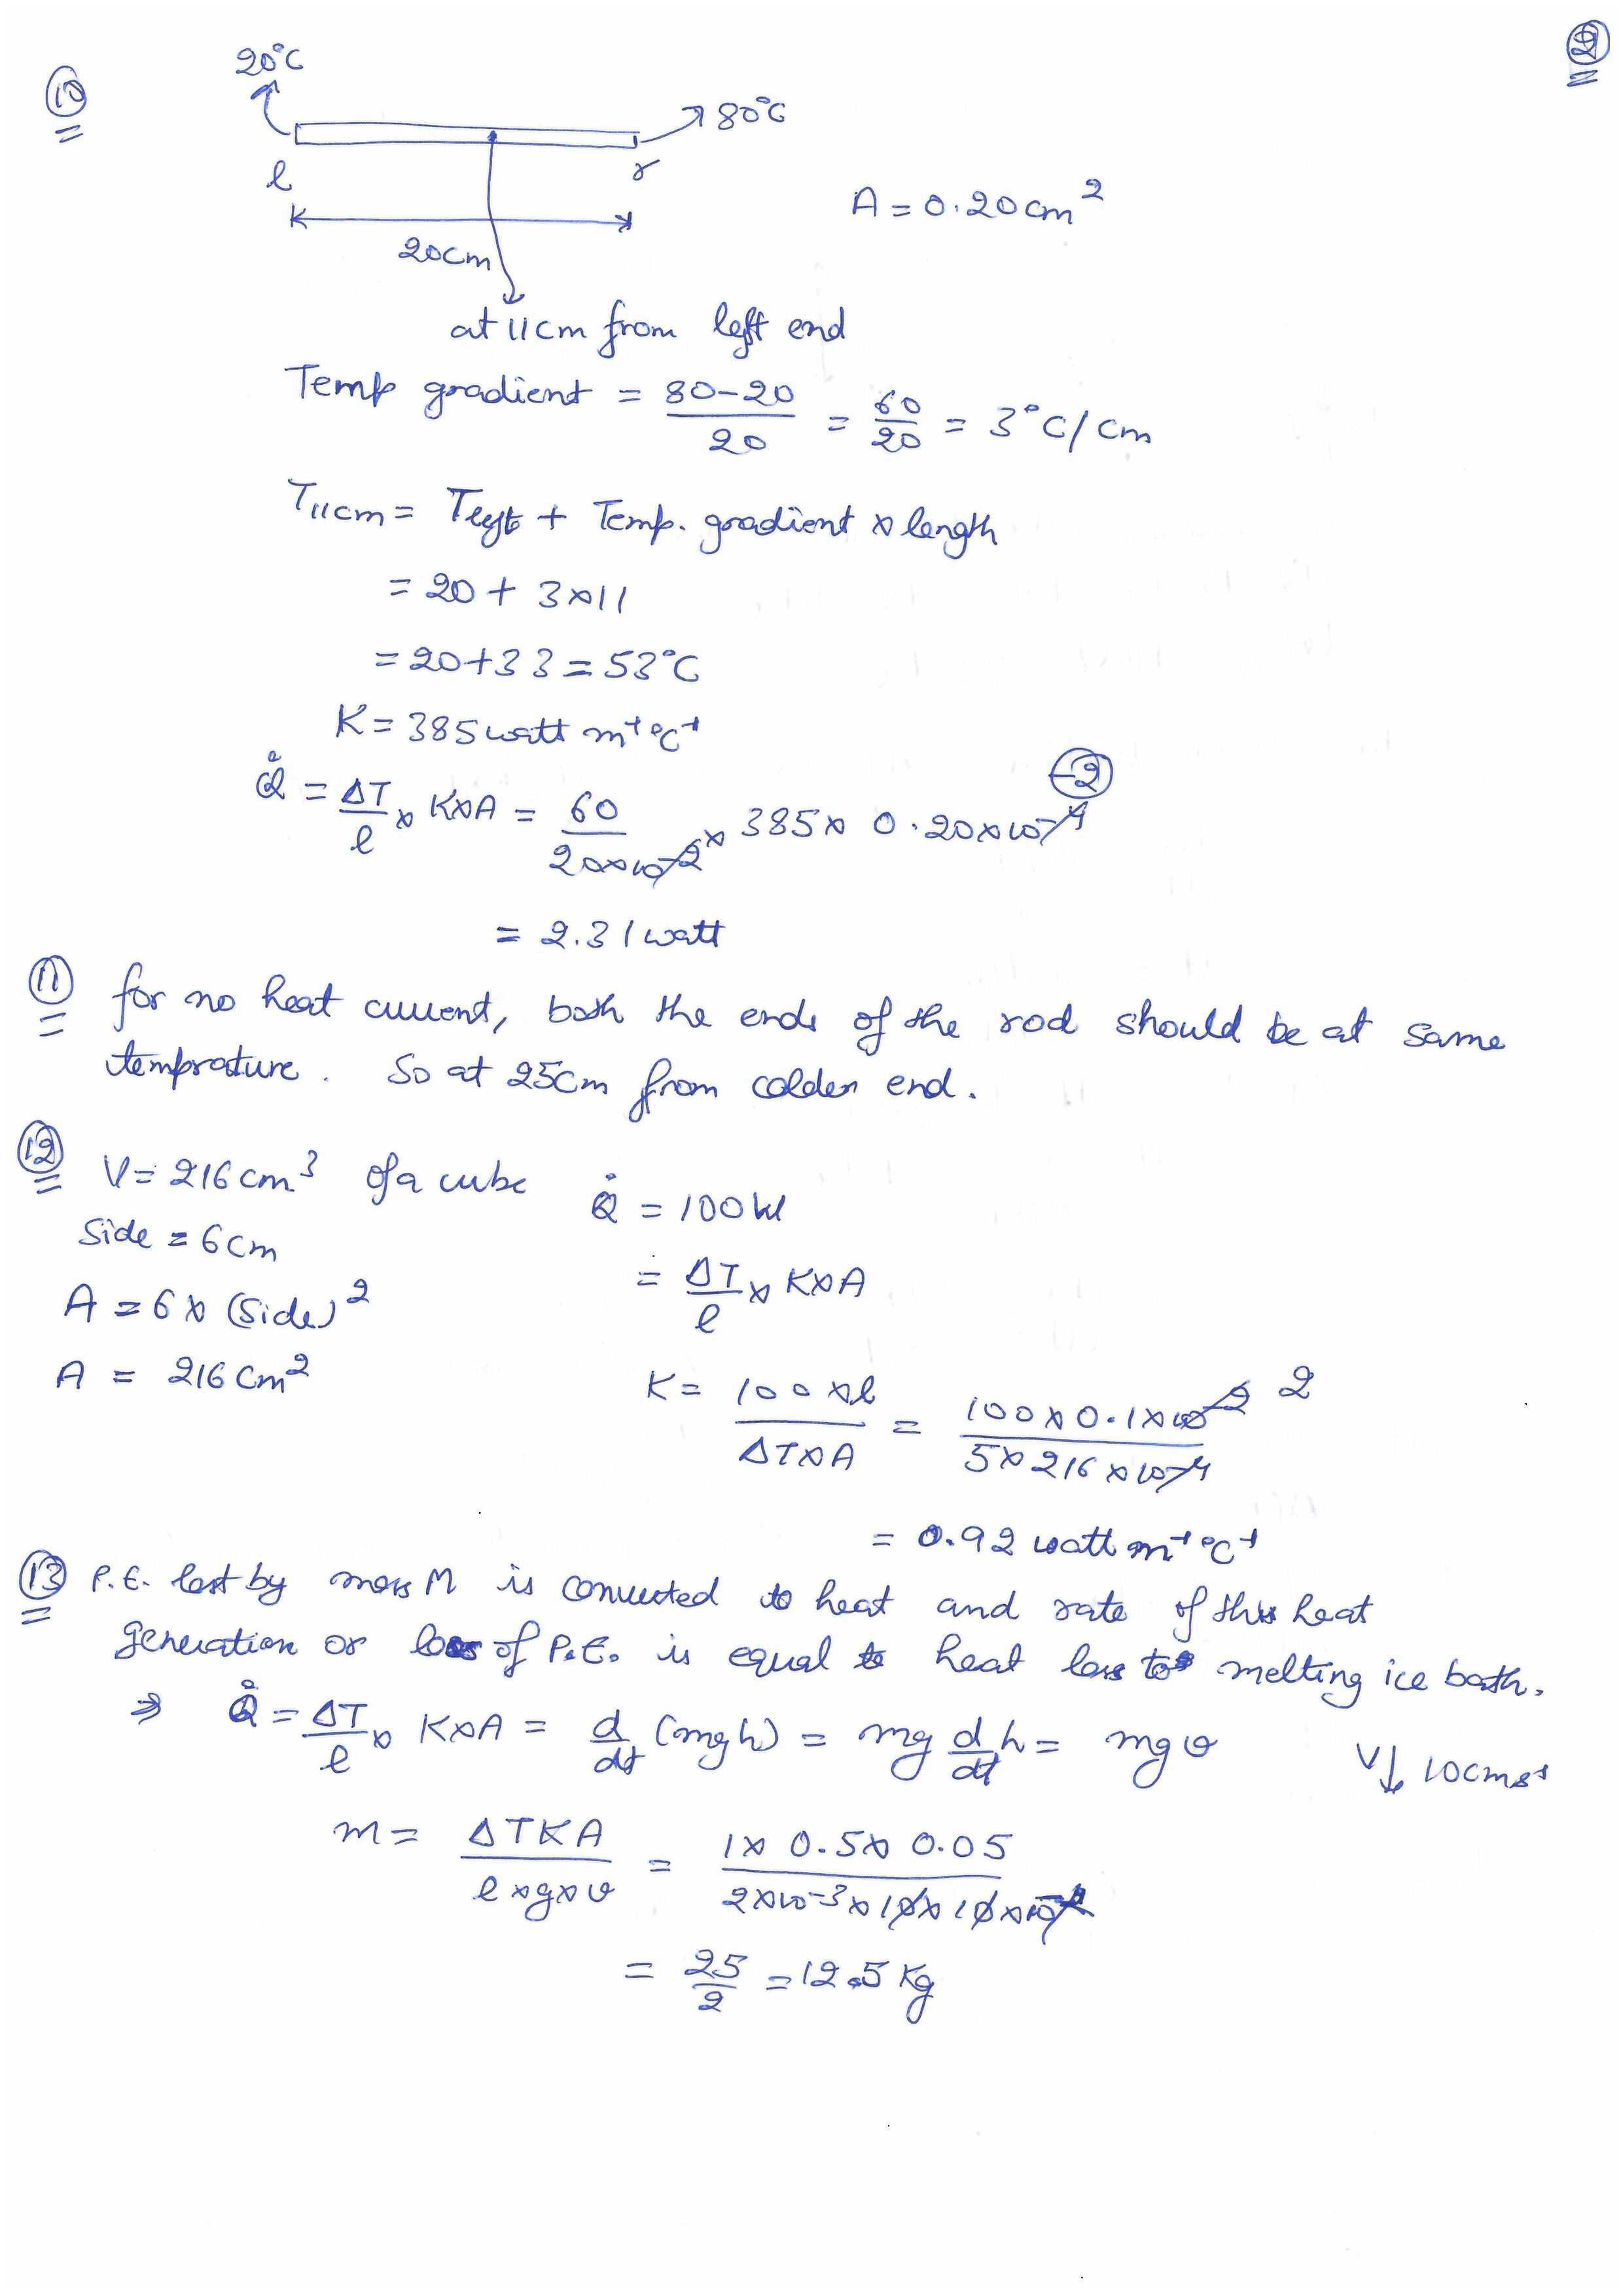 2
10
20°C
80°C
l r
A = 0.20 cm²
20cm
at 11cm from left end
Temp gradient = 80-20/20 = 60/20 = 3°C/cm
T11cm = Tleft + Temp. gradient × length
= 20 + 3×11
= 20+33 = 53°C
K = 385 watt m⁻¹ °C⁻¹
Q̇ = ΔT/l × K×A = 60/20×10⁻² × 385 × 0.20×10⁻⁴ -2
= 2.31 watt
11 for no heat current, both the ends of the rod should be at same
temprature. So at 25cm from colder end.
12 V = 216 cm³ of a cube Q̇ = 100W
Side = 6cm
= ΔT/l × K×A
A = 6 × (Side)²
A = 216 cm²
K = 100×l/ΔT×A = 100×0.1×10⁻² 2/5×216×10⁻⁴
= 0.92 watt m⁻¹ °C⁻¹
13 P.E. lost by mass M is converted to heat and rate of this heat
generation or loss of P.E. is equal to heat loss to melting ice bath.
⇒ Q̇ = ΔT/l × K×A = d/dt (mgh) = mg d/dt h = mgv V↓ 10cms⁻¹
m = ΔTKA/l×g×v = 1×0.5×0.05/2×10⁻³×10×10×10⁻²
= 25/2 = 12.5 Kg